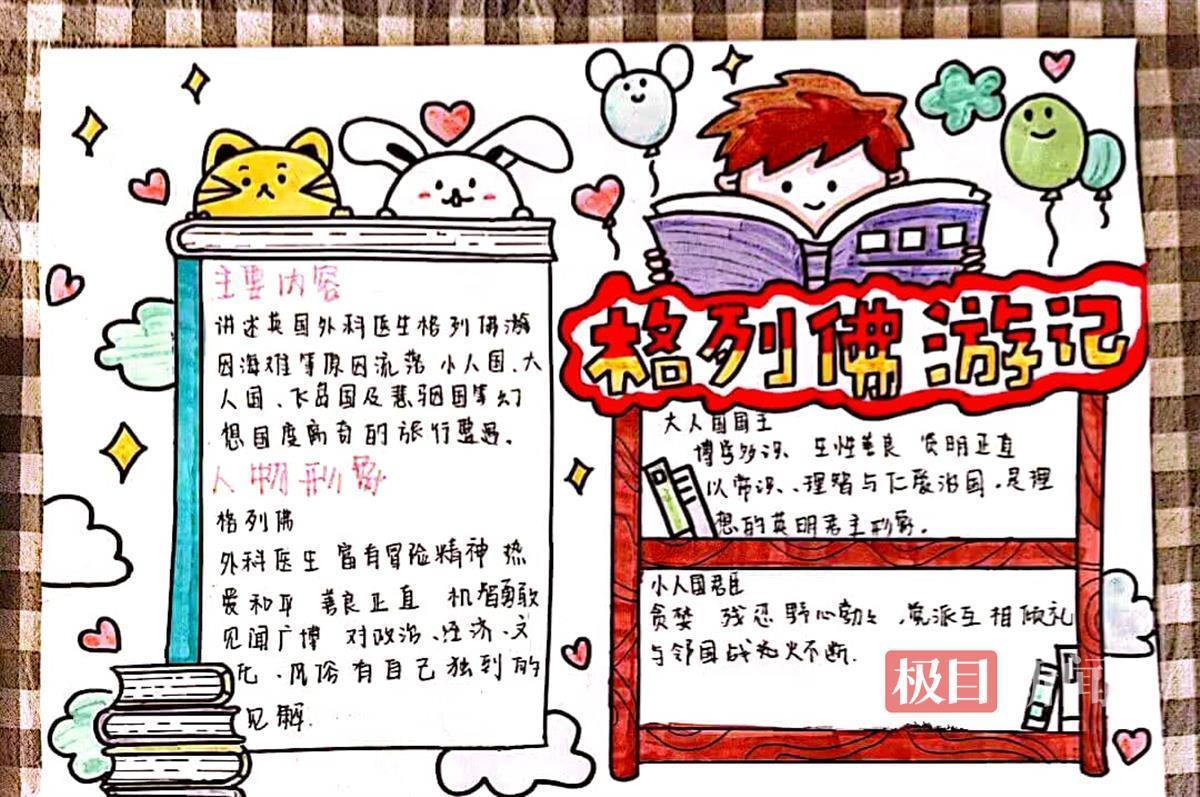 格列佛游记
主要内容
讲述英国外科医生格列佛游
因海难等原因流落 小人国、大
人国、飞岛国及慧骃国等幻
想国度离奇的旅行
人物形
格列佛
外科医生 富有冒险精神 热
爱和平 善良正直 机智勇敢
见闻广博 对政治、经济、文
化、风俗有自己独到的
见解.
大人国国王
博学多识、生性善良 贤明正直
以常识、理智与仁爱治国,是理
想的英明君主形象。
小人国君臣
贪婪 残忍 野心勃勃,党派互相倾轧
与邻国战火不断.
极目